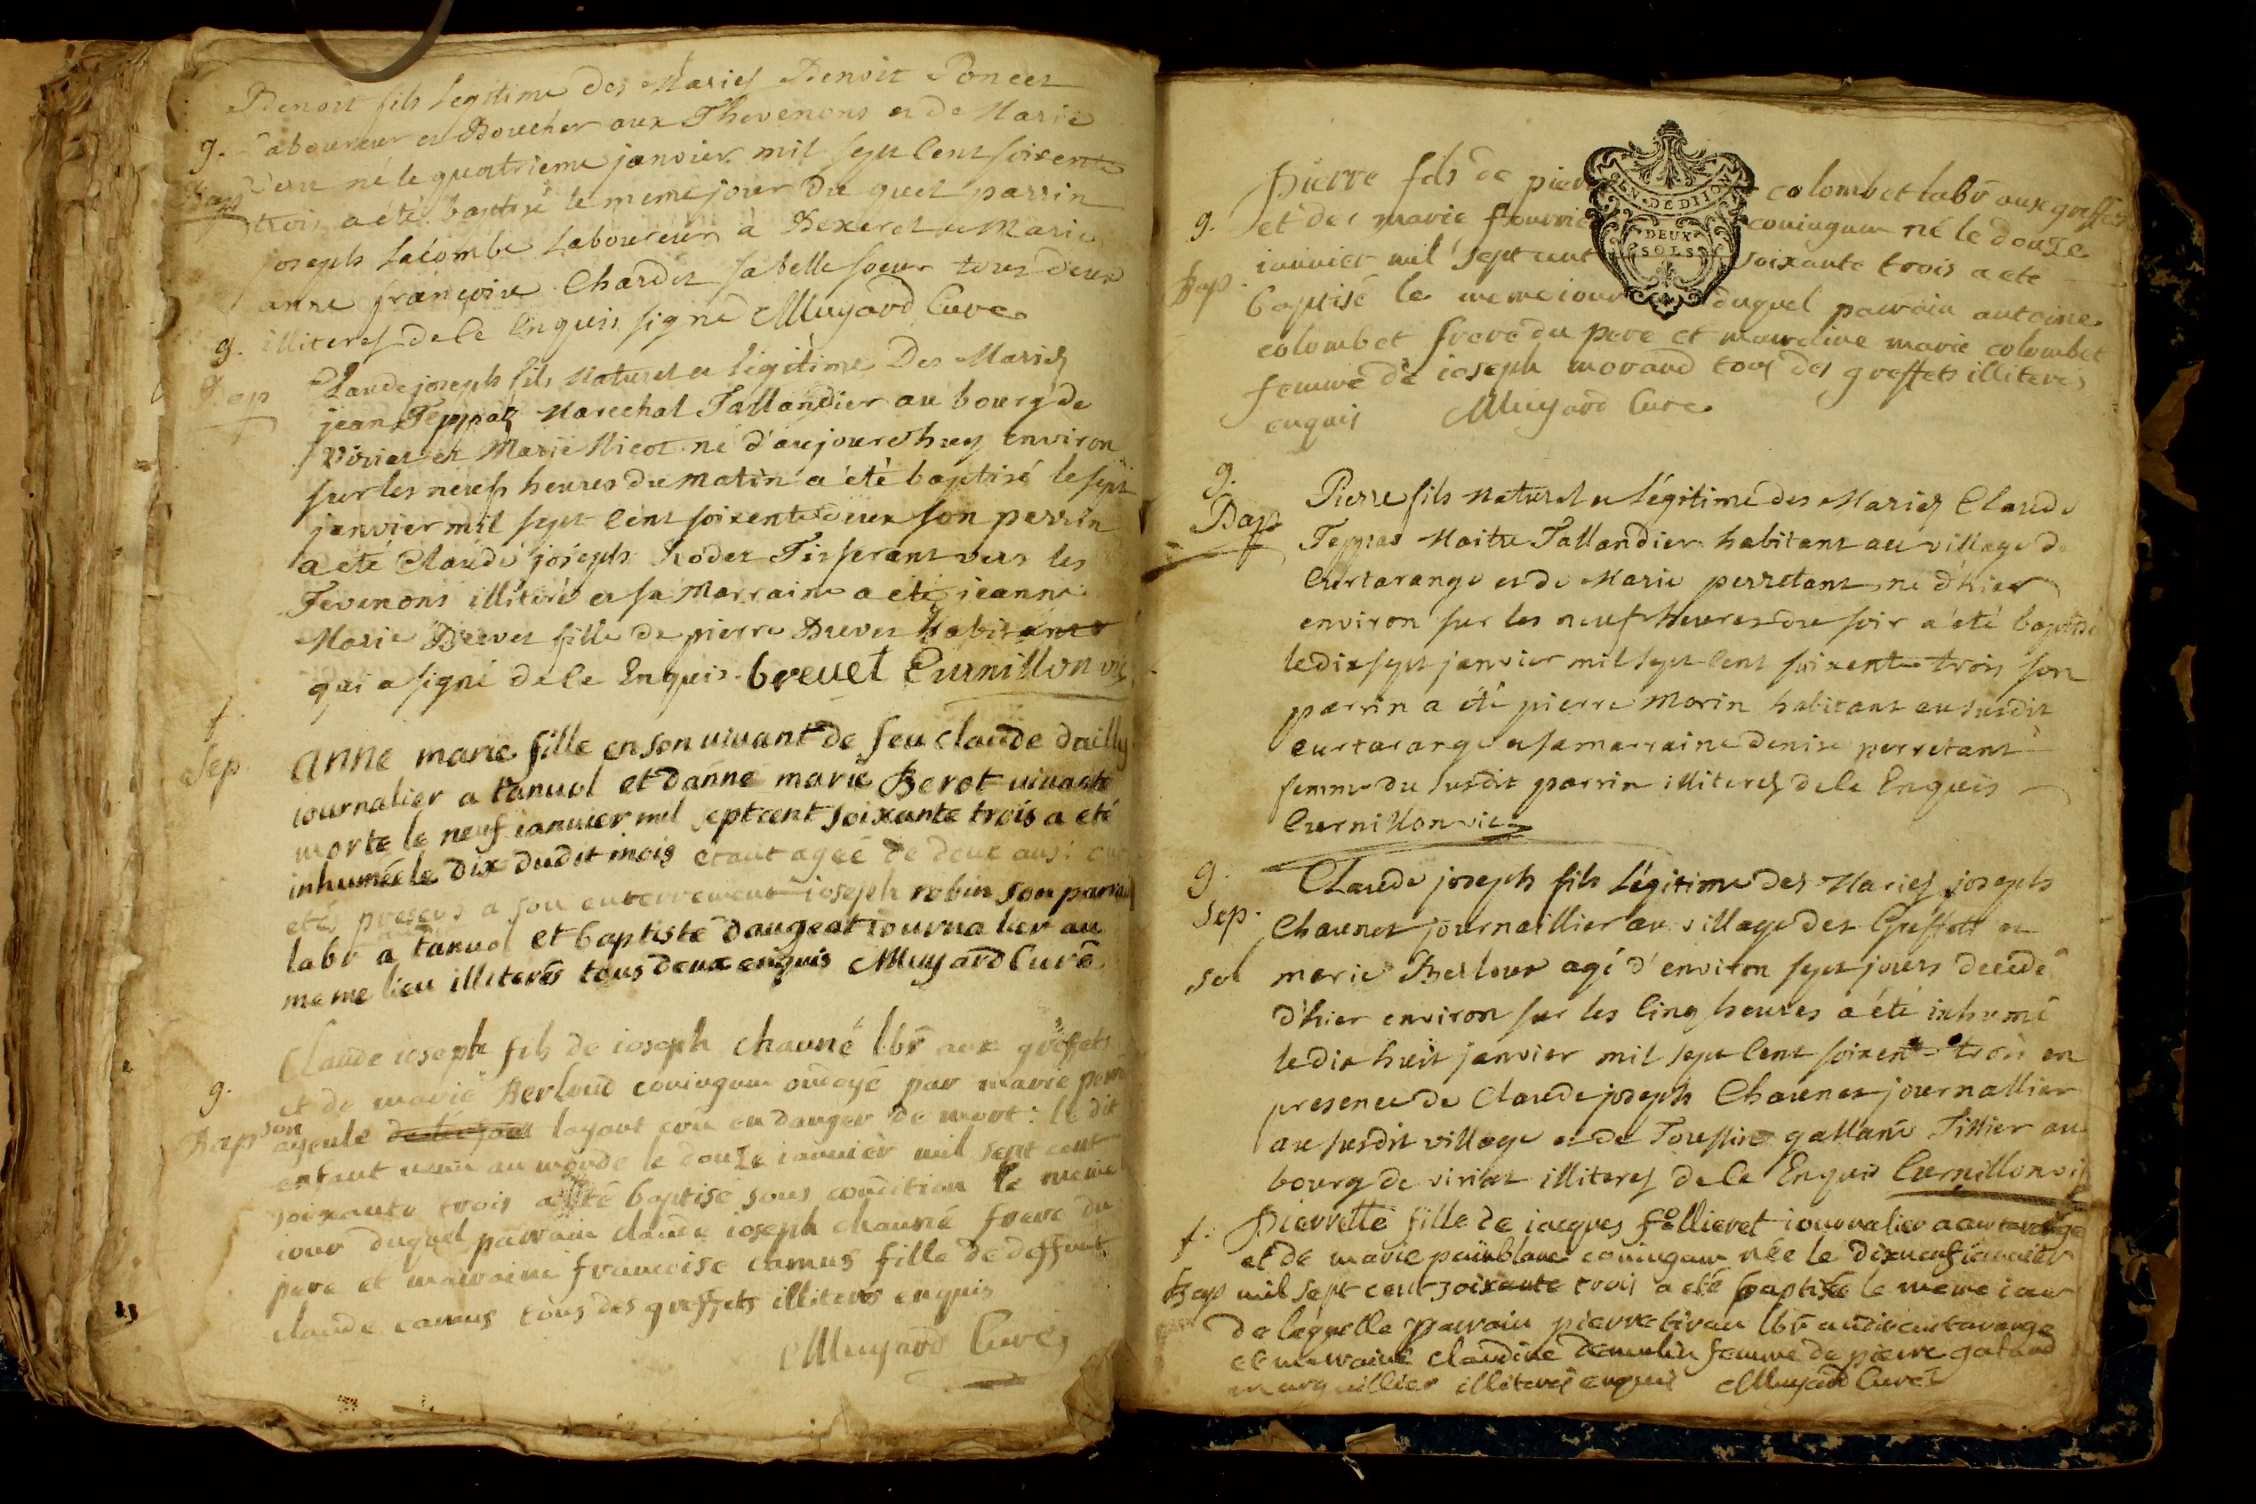 Benoit fils legitime des Mariés Benoit Poncet
g. Laboureur et Boucher aux Thevenons et de Marie
né le quatrieme janvier mil sept Cent soixente
Bap trois a été baptisé le meme jour du quel parrin
joseph Lacombe Laboureur à et Marie
anne françoise Chardet sa belle soeur tous deux
illiteres de ce Enquis signé Muyard Curé
g.
Bap Claude joseph fils Naturel et légitime Des Mariés
jean Teppaz Marechal Tallandier au bourg de
Viriat et Marie Nicot né d'aujourdhuy environ
sur les neufs heures du matin a été baptisé le sept
janvier mil sept Cent soixente deux son perrin
a été Claude joseph Rodet Tisserant vers les
Tevenons illiteré et sa Marraine a été jeanne
Marie Brevet fille de pierre Brevet habitant
qui a signé de ce Enquis. brevet Curnillon vic
f.
Sep. anne marie fille en son vivant de feu claude dailly
iournalier a tanuol et danne marie Berot vivante
morte le neuf ianvier mil septcent soixante trois a eté
inhumée le dix dudit mois etant agée de deux ans: ont
etés presens a son enterrement ioseph robin son parrain
labr a tanvol et baptiste daugeat iournalier au
meme lieu illiterés tous deux enquis Muyard Curé
Claude ioseph fils de ioseph chauné lbr aux greffets
g. et de marie Berloud coniugam ondoyé par marie
Bap son ayeule layant crû en danger de mort: le dit
enfant venu au monde le douze ianvier mil sept cent
soixante trois a été baptisé sous condition le meme
iour duquel parrain claude ioseph chauné frere du
pere et marraine francoise camus fille de deffunt
claude camus tous des greffets illiteres enquis
Muyard Curé
Pierre fils de pierre colombet labr aux greffets
g. et de marie coniugam né le douze
ianvier mil sept cent soixante trois a eté
Bap. baptisé le meme iour duquel parrain antoine
colombet frere du pere et marraine marie colombet
femme de ioseph morand tous des greffets illiteres
enquis Muyard Curé
GEN. DE DIJON
DEUX
SOLS
g.
Bap Pierre fils Naturel et légitime des Mariés Claude
Teppas Maitre Tallandier habitant au village de
Curtarange et de Marie perretant né d'hier
environ sur les neuf heures du soir a été baptisé
le dix sept janvier mil sept Cent soixente trois son
parrin a été pierre Morin habitant au susdit
curtarange et sa marraine denise perretant
femme du susdit parrin illiterés de ce Enquis
Curnillon vic
g. Claude joseph fils légitime des Mariés joseph
Sep. Chaunet journaillier au village des Greffets et
sol marie Berloux agé d'environ sept jours decedé
d'hier environ sur les Cinq heures a été inhumé
le dix huit janvier mil sept Cent soixente trois en
presence de Claude joseph Chaunet journallier
au susdit village et de Toussin gallane Tillier au
bourg de viriat illiteres de ce Enquis Curnillon vic
f. Pierrette fille de iacques follieret iournalier a curtarange
et de marie coniugam née le dixneuf ianvier
Bap mil sept cent soixante trois a eté baptisée le meme iour
de laquelle parrain pierre lbr audit curtarange
et marraine claudine femme de pierre
marguillier illiteres enquis Muyard Curé